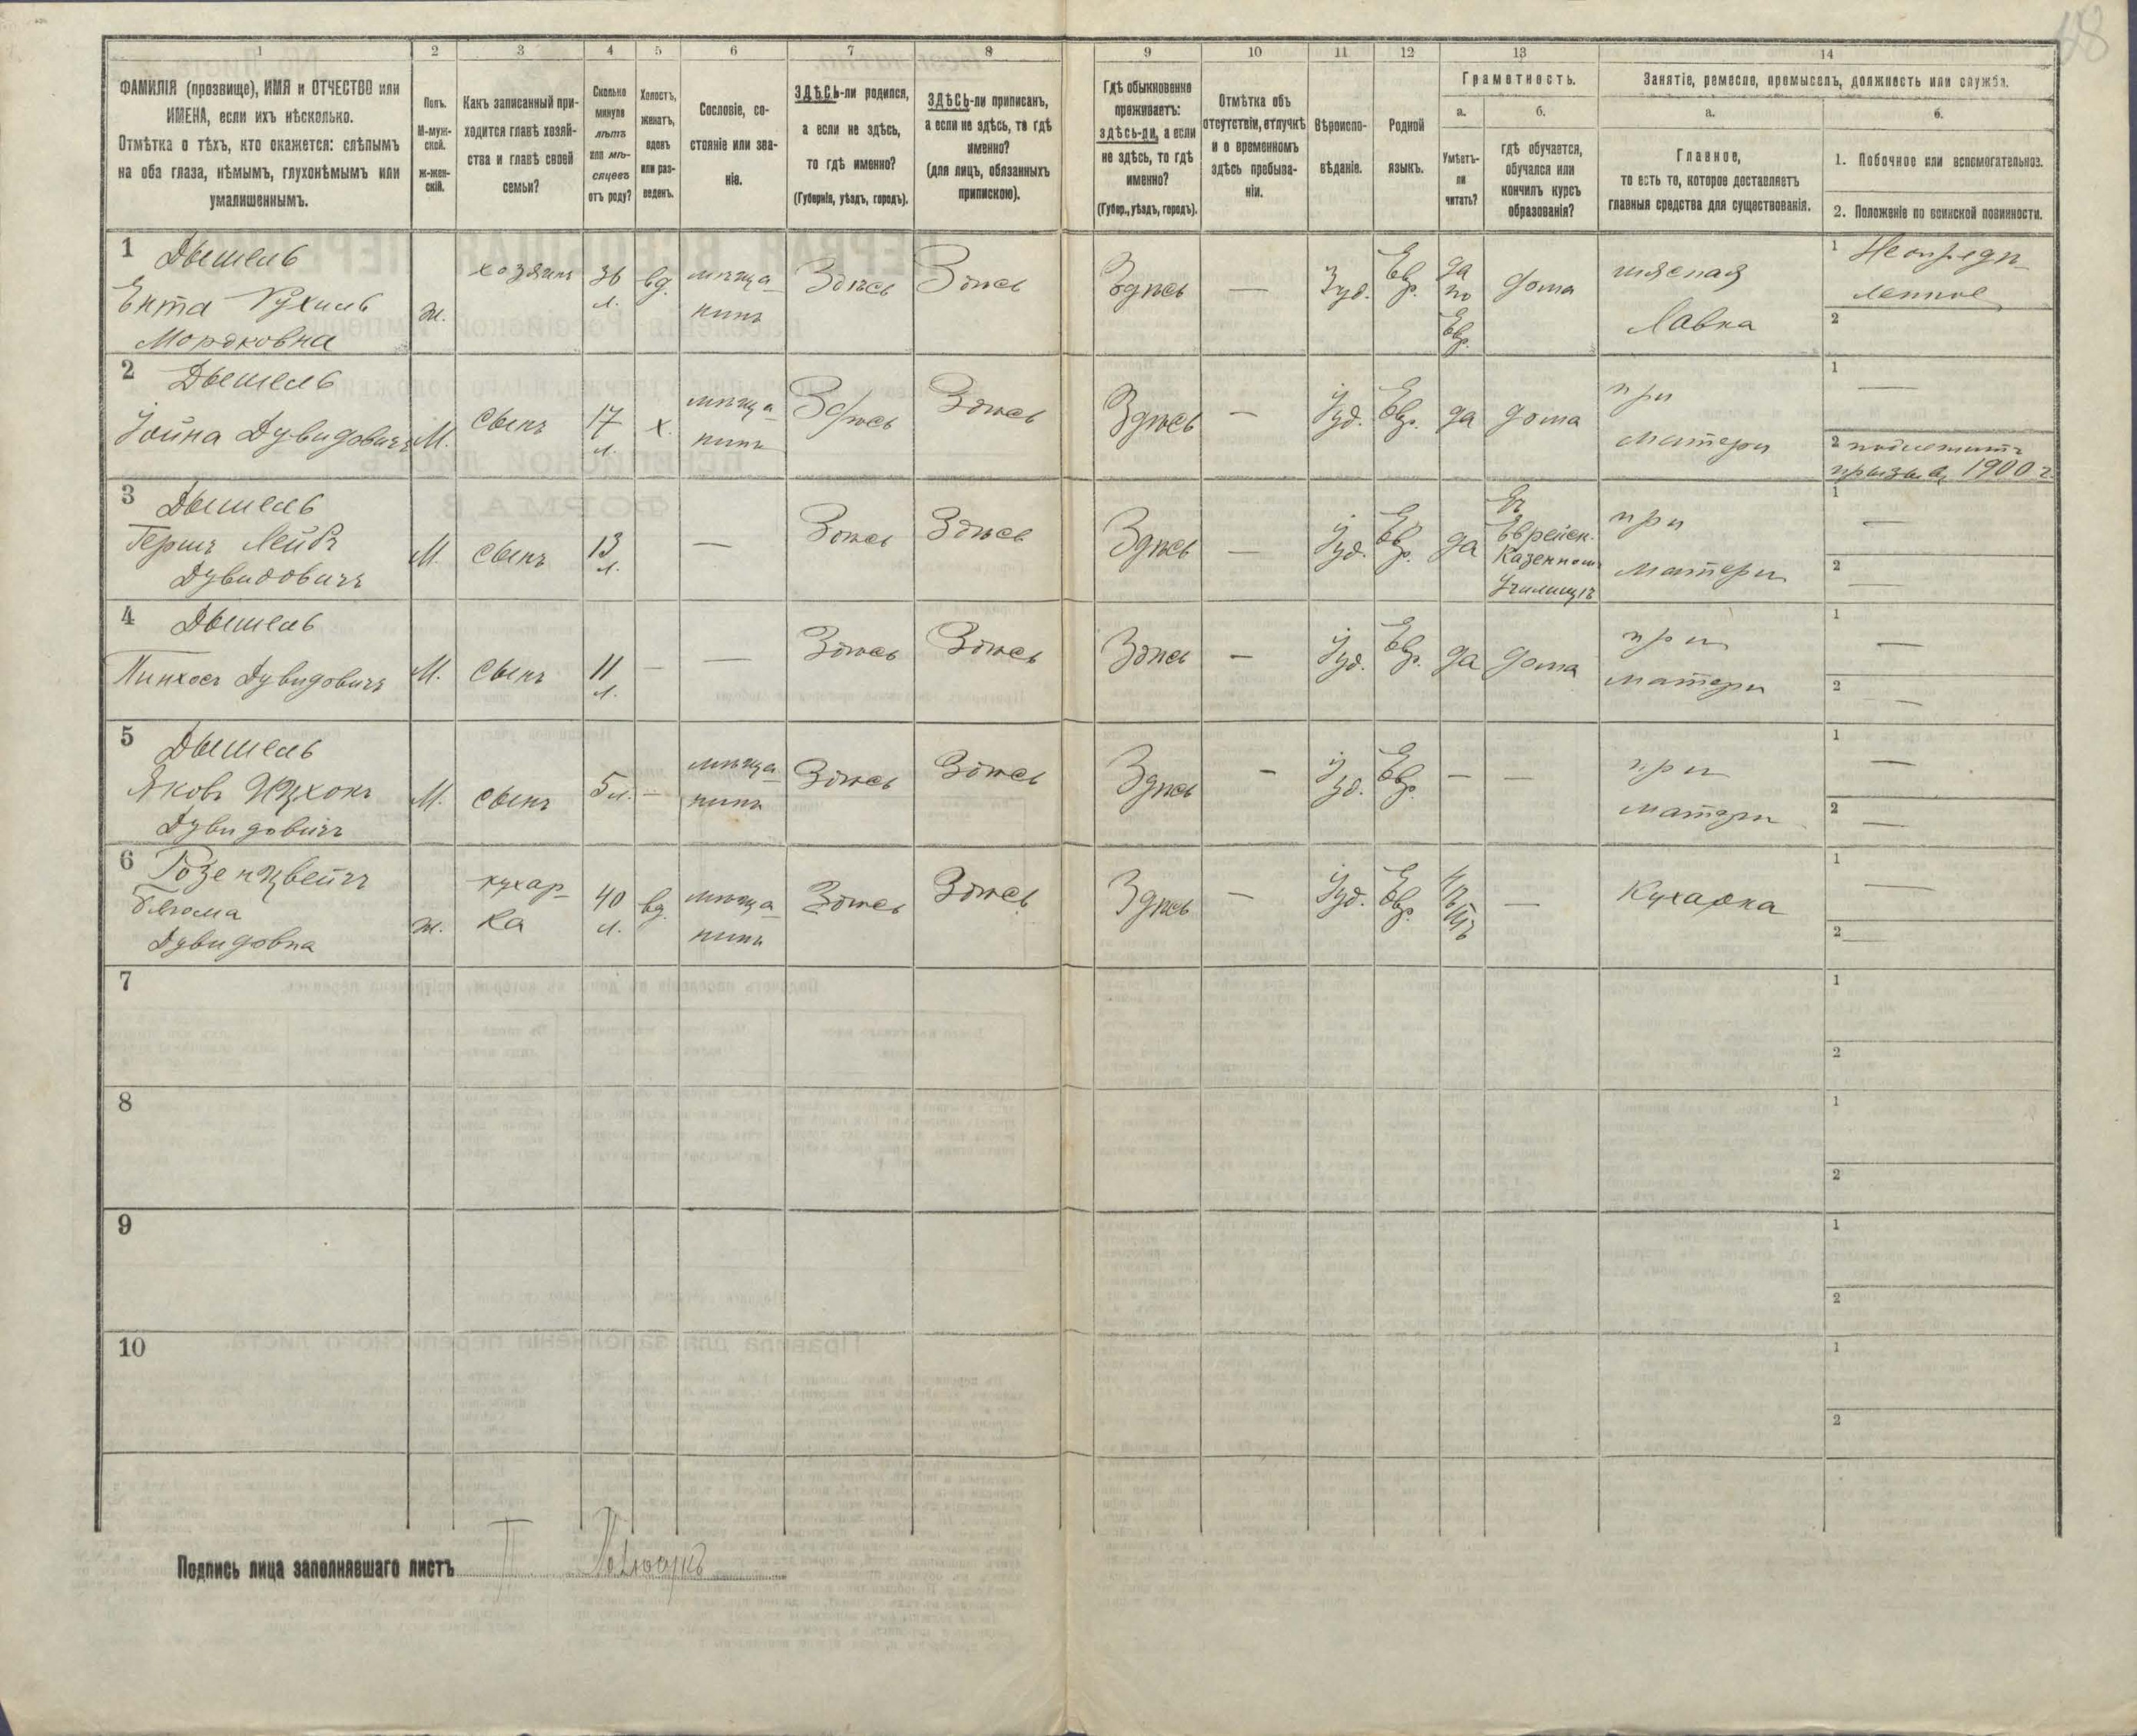 68
1 2 3 4 5 6 7 8 9 10 11 12 13 14
ФАМИЛІЯ (прозвище), ИМЯ и ОТЧЕСТВО или
ИМЕНА, если ихъ нѣсколько.
Отмѣтка о тѣхъ, кто окажется: слѣпымъ
на оба глаза, нѣмымъ, глухонѣмымъ или
умалишеннымъ.
Полъ.
М-муж-
ской.
ж-жен-
скій.
Какъ записанный при-
ходится главѣ хозяй-
ства и главѣ своей
семьи?
Сколько
минуло
лѣтъ
или мѣ-
сяцевъ
отъ роду?
Холостъ,
женатъ,
вдовъ
или раз-
веденъ.
Сословіе, со-
стояніе или зва-
ніе.
ЗДѢСЬ-ли родился,
а если не здѣсь,
то гдѣ именно?
(Губернія, уѣздъ, городъ).
ЗДѢСЬ-ли приписанъ,
а если не здѣсь, то гдѣ
именно?
(для лицъ, обязанныхъ
припискою).
Гдѣ обыкновенно
проживаетъ:
здѣсь-ли, а если
не здѣсь, то гдѣ
именно?
(Губер., уѣздъ, городъ).
Отмѣтка объ
отсутствіи, отлучкѣ
и о временномъ
здѣсь пребыва-
ніи.
Вѣроиспо-
вѣданіе.
Родной
языкъ.
Грамотность.
а.
Умѣетъ-
ли
читать?
б.
гдѣ обучается,
обучался или
кончилъ курсъ
образованія?
Занятіе, ремесло, промыселъ, должность или служба.
а.
Главное,
то есть то, которое доставляетъ
главныя средства для существованія.
б.
1. Побочное или вспомогательное.
2. Положеніе по воинской повинности.
1 Дышель
Ента Рухиль
Мордковна
ж.
хозяинъ
36
л.
вд.
мѣща-
нинъ
Здѣсь
Здѣсь
Здѣсь
—
Іуд.
Евр.
да
по
Евр.
дома
мясная
лавка
1 Неопредѣ-
ленное
2
2 Дышель
Іойна Дувидовичъ
М.
сынъ
17
л.
х.
мѣща-
нинъ
Здѣсь
Здѣсь
Здѣсь
—
Іуд.
Евр.
да
дома
при
матери
1 —
2 подлежитъ
призыв. 1900 г.
3 Дышель
Гершъ Лейбъ
Дувидовичъ
М.
сынъ
13
л.
—
Здѣсь
Здѣсь
Здѣсь
—
Іуд.
Евр.
да
Въ
Еврейск.
Казенномъ
Училищѣ
при
матери
1 —
2 —
4 Дышель
Пинхосъ Дувидовичъ
М.
сынъ
11
л.
—
—
Здѣсь
Здѣсь
Здѣсь
—
Іуд.
Евр.
да
дома
при
матери
1 —
2 —
5 Дышель
Яковъ Ицхокъ
Дувидовичъ
М.
сынъ
5 л.
—
мѣща-
нинъ
Здѣсь
Здѣсь
Здѣсь
—
Іуд.
Евр.
—
—
при
матери
1 —
2 —
6 Розенцвейгъ
Блюма
Дувидовна
ж.
кухар-
ка
40
л.
вд.
мѣща-
нинъ
Здѣсь
Здѣсь
Здѣсь
—
Іуд.
Евр.
нѣтъ
—
Кухарка
1 —
2 —
7
1
2
8
1
2
9
1
2
10
1
2
Подпись лица заполнявшаго листъ